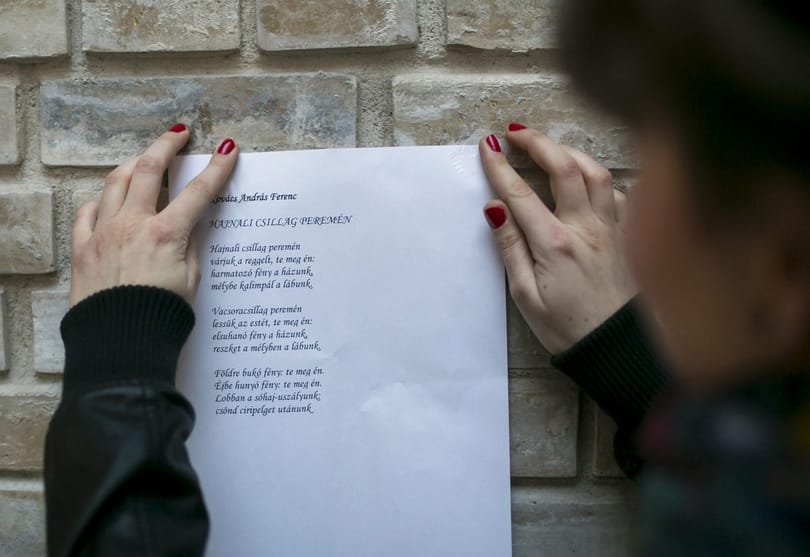 Kovács András Ferenc
HAJNALI CSILLAG PEREMÉN
Hajnali csillag peremén
várjuk a reggelt, te meg én:
harmatozó fény a házunk,
mélybe kalimpál a lábunk.
Vacsoracsillag peremén
lessük az estét, te meg én:
elsuhanó fény a házunk,
reszket a mélyben a lábunk.
Földre bukó fény: te meg én.
Éjbe hunyó fény: te meg én.
Lobban a sóhaj-uszályunk:
csönd ciripelget utánunk.